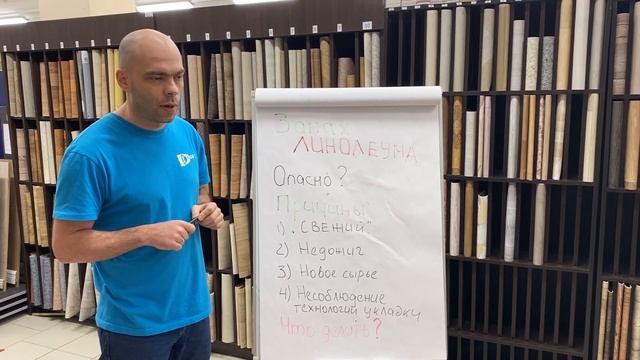 Запах
ЛИНОЛЕУМА
Опасно?
Причины:
1) "СВЕЖИЙ"
2) Недожиг
3) Новое сырье
4) Несоблюдение
технологий укладки
Что делать?